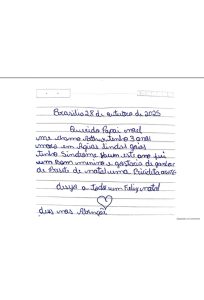 Brasilia 28 de outubro de 2025
Querido Papai noel
me chamo Arthur, tenho 3 anos
moro em Aguas lindas goias
tenho Sindrome Down este ano fui
um bom menino e gostaria de ganhar
de Presente de natal uma Bicicleta
desejo a todos um Feliz natal
deus nos Abençõe